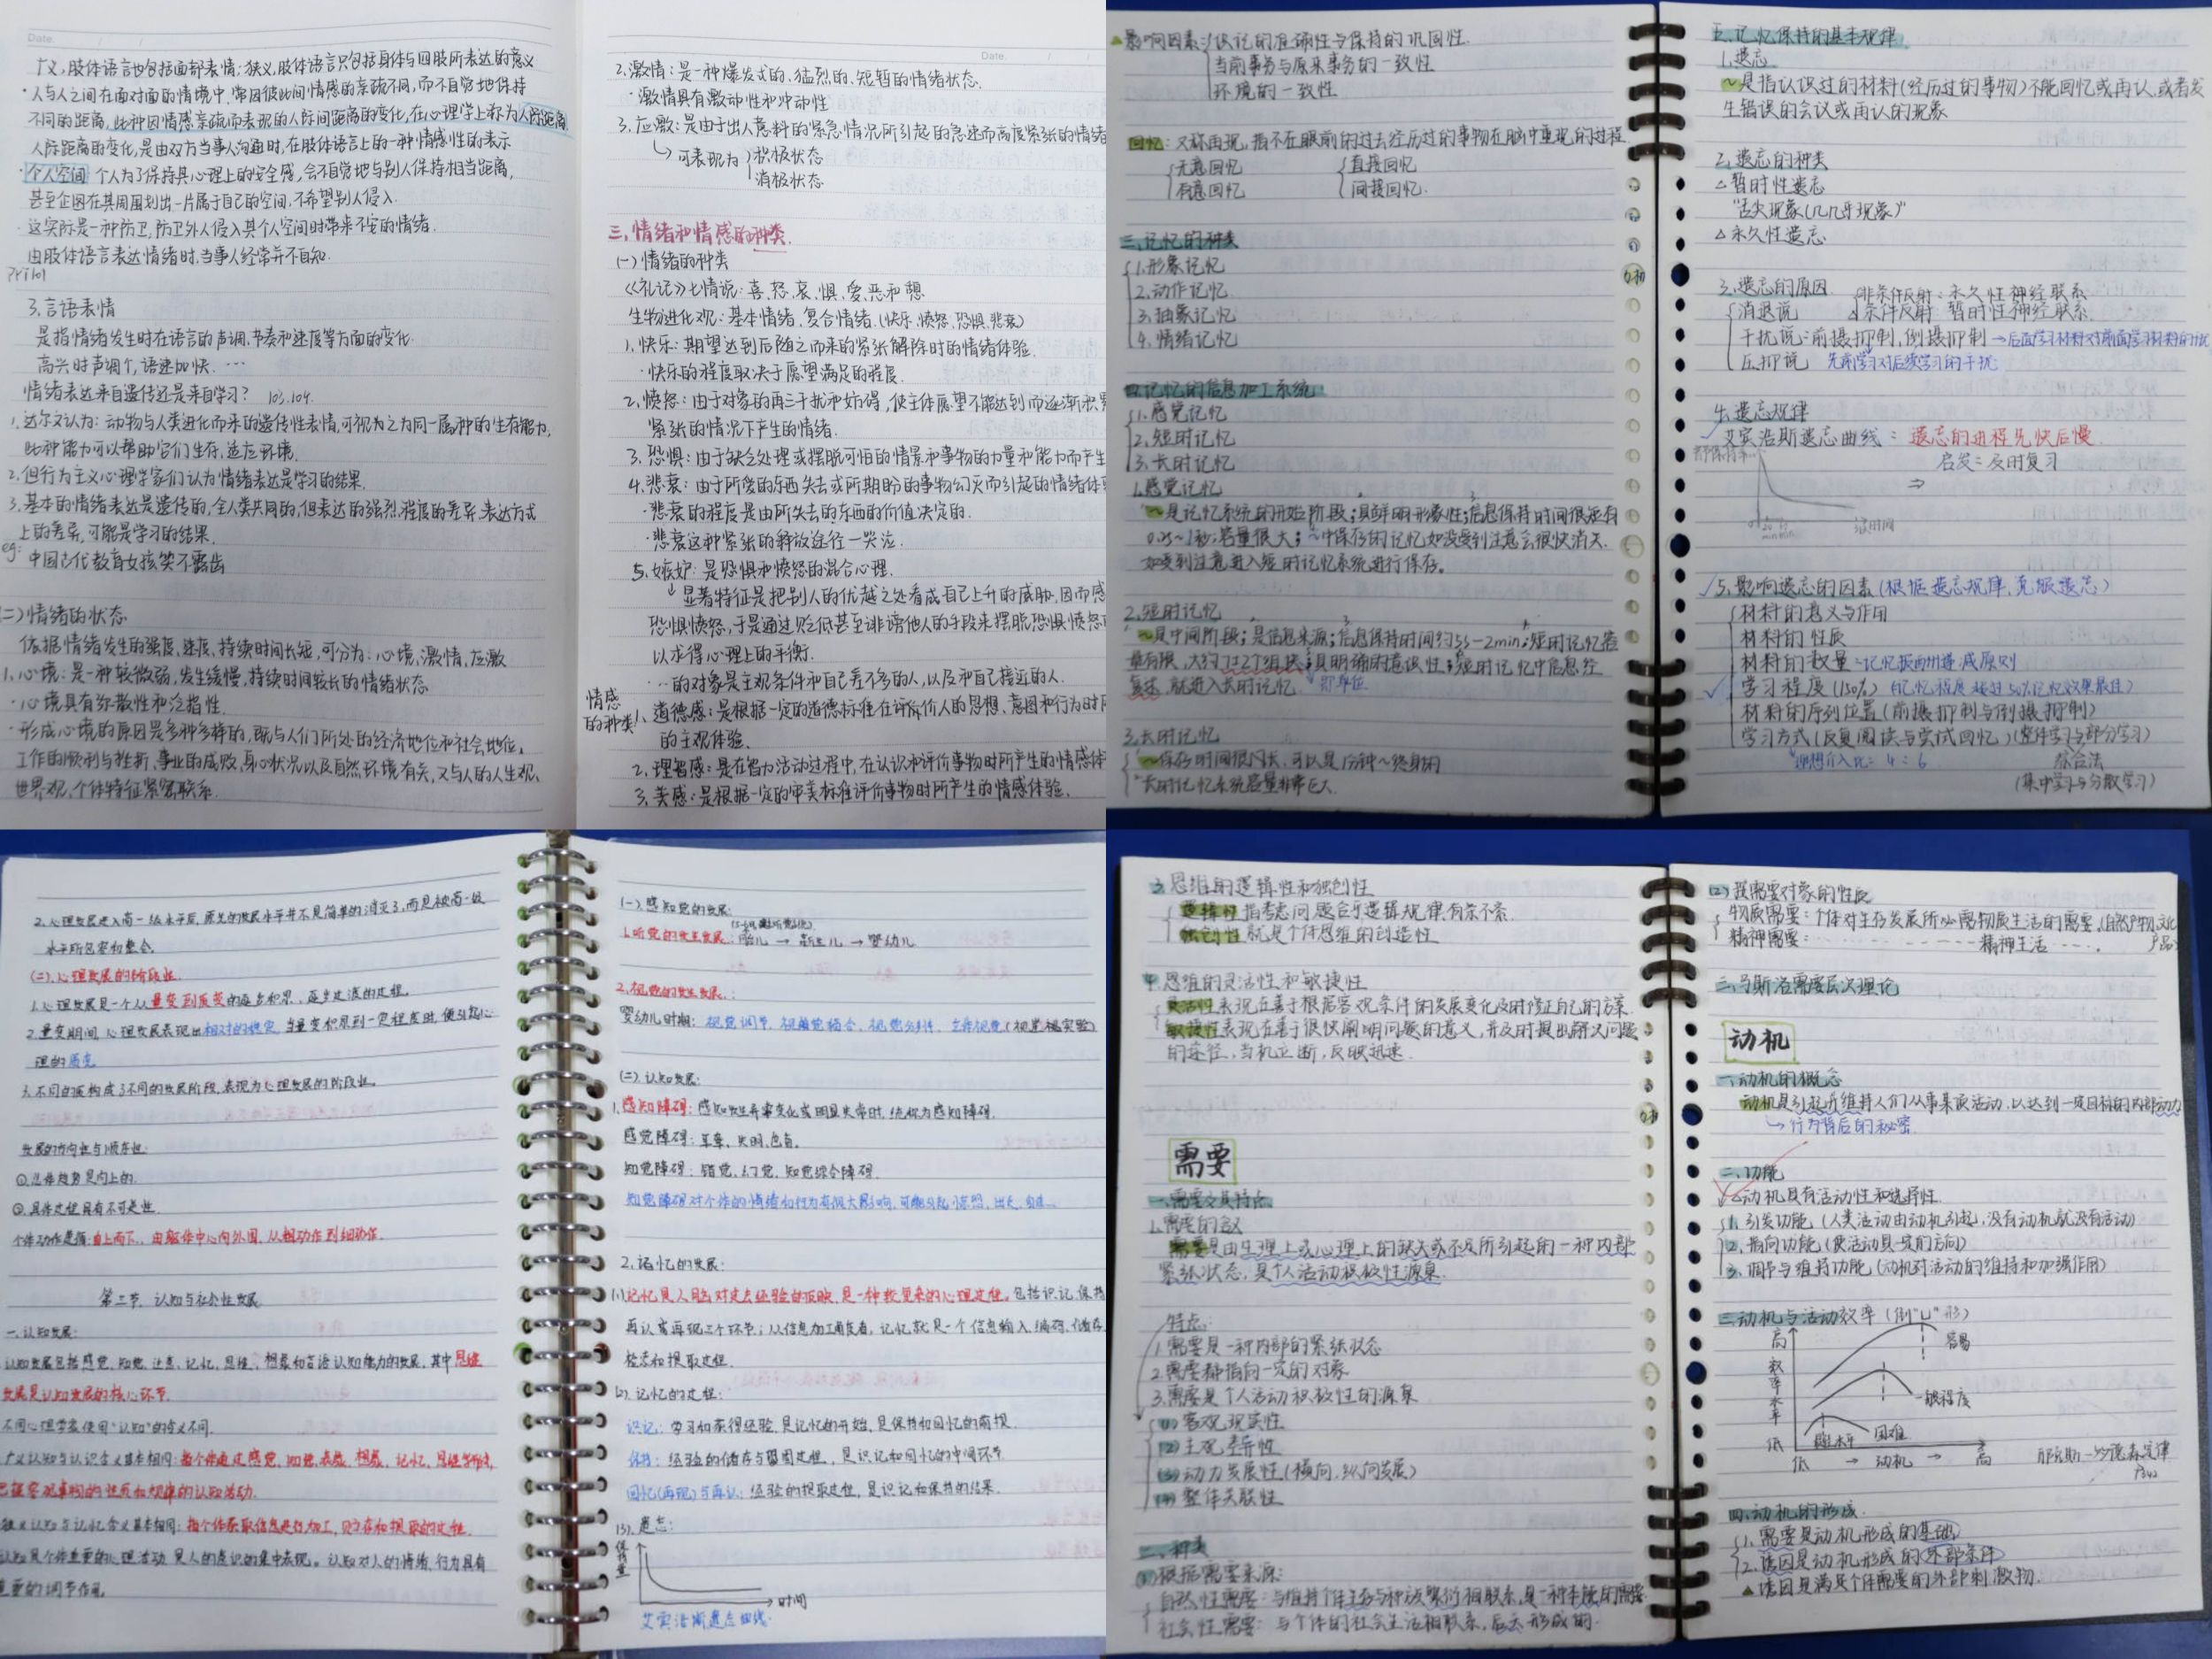 Date.
广义,肢体语言也包括面部表情;狭义,肢体语言只包括身体与四肢所表达的意义
·人与人之间在面对面的情境中,常因彼此间情感的亲疏不同,而不自觉地保持
不同的距离,此种因情感亲疏而表现的人际间距离的变化,在心理学上称为人际距离
人际距离的变化,是由双方当事人沟通时,在肢体语言上的一种情感性的表示
·个人空间 个人为了保持其心理上的安全感,会不自觉地与别人保持相当距离,
甚至企图在其周围划出一片属于自己的空间,不希望别人侵入.
·这实际是一种防卫,防卫外人侵入其个人空间时带来不安的情绪.
由肢体语言表达情绪时,当事人经常并不自知.
P101
3.言语表情
是指情绪发生时在语言的声调,节奏和速度等方面的变化.
高兴时声调个,语速加快. …
情绪表达来自遗传还是来自学习? 103.104.
1.达尔文认为:动物与人类进化而来的遗传性表情,可视为之为同一属种的生存能力,
此种能力可以帮助它们生存,适应环境.
2.但行为主义心理学家们认为情绪表达是学习的结果.
3.基本的情绪表达是遗传的,全人类共同的,但表达的强烈,程度的差异,表达方式
上的差异,可能是学习的结果.
eg: 中国古代教育女孩笑不露齿
(二)情绪的状态
依据情绪发生的强度,速度,持续时间长短,可分为:心境,激情,应激
1.心境:是一种较微弱,发生缓慢,持续时间较长的情绪状态
·心境具有弥散性和泛指性.
·形成心境的原因是多种多样的,既与人们所处的经济地位和社会地位,
工作的顺利与挫折,事业的成败,身心状况以及自然环境有关,又与人的人生观,
世界观,个体特征紧密联系.
Date.
2.激情:是一种爆发式的,猛烈的,短暂的情绪状态.
·激情具有激动性和冲动性
3.应激:是由于出人意料的紧急情况所引起的急速而高度紧张的情绪
可表现为 积极状态
消极状态
三.情绪和情感的种类.
(一)情绪的种类
《礼记》七情说:喜,怒,哀,惧,爱,恶和憩
生物进化观:基本情绪,复合情绪.(快乐,愤怒,恐惧,悲哀)
1.快乐:期望达到后随之而来的紧张解除时的情绪体验.
·快乐的程度取决于愿望满足的程度.
2,愤怒:由于对象的再三干扰和妨碍,使主体愿望不能达到而逐渐积累
紧张的情况下产生的情绪.
3.恐惧:由于缺乏处理或摆脱可怕的情景和事物的力量和能力而产生
4.悲哀:由于所爱的东西失去或所期盼的事物幻灭而引起的情绪体验
·悲哀的程度是由所失去的东西的价值决定的.
·悲哀这种紧张的释放途径—哭泣.
5.嫉妒:是恐惧和愤怒的混合心理.
显著特征是把别人的优越之处看成自己上升的威胁,因而感
恐惧愤怒,于是通过贬低甚至诽谤他人的手段来摆脱恐惧愤怒
以求得心理上的平衡.
·…的对象是主观条件和自己差不多的人,以及和自己接近的人.
情感的种类
1.道德感:是根据一定的道德标准在评价人的思想、意图和行为时所
的主观体验.
2.理智感:是在智力活动过程中,在认识和评价事物时所产生的情感体
3.美感:是根据一定的审美标准评价事物时所产生的情感体验.
影响因素:识记的准确性与保持的巩固性.
当前事务与原来事务的一致性
环境的一致性
回忆:又称再现,指不在眼前的过去经历过的事物在脑中重现的过程.
无意回忆 直接回忆
有意回忆 间接回忆.
三.记忆的种类
1.形象记忆
2.动作记忆
3.抽象记忆
4.情绪记忆
四.记忆的信息加工系统
1.感觉记忆
2.短时记忆
3.长时记忆
1.感觉记忆
~是记忆系统的开始阶段;具鲜明形象性;信息保持时间很短有
0.25~1秒;容量很大;~中保存的记忆如没受到注意会很快消失.
如受到注意进入短时记忆系统进行保存。
2.短时记忆
~是中间阶段;是信息来源;信息保持时间约5s-2min;短时记忆容
量有限,大约7±2个组块;具明确的意识性;短时记忆中信息经
复述,就进入长时记忆. 即单位
3.长时记忆
~保存时间很长,可以是1分钟~终身的
~长时记忆系统容量非常巨大.
五.记忆保持的基本规律
1.遗忘
~是指认识过的材料(经历过的事物)不能回忆或再认,或者发
生错误的会议或再认的现象
2.遗忘的种类
△暂时性遗忘
“舌尖现象(几几乎现象)”
△永久性遗忘
3.遗忘的原因 非条件反射:永久性神经联系
消退说 条件反射 暂时性神经联系.
干扰说:前摄抑制,倒摄抑制→后面学习材料对前面学习材料的干扰
压抑说 先前学习对后续学习的干扰
4.遗忘规律
艾宾浩斯遗忘曲线:遗忘的进程先快后慢.
启发:及时复习
5.影响遗忘的因素(根据遗忘规律,克服遗忘)
材料的意义与作用
材料的性质
材料的数量
学习程度(150%) 的记忆程度超过50%记忆效果最佳)
材料的序列位置(前摄抑制与倒摄抑制)
学习方式(反复阅读与尝试回忆)(整体学习与部分学习)
4:6 综合法
(集中学习与分散学习)
2.心理发展进入高一级水平后,原先的发展水平并不是简单的消灭了,而是被高一级
水平所包容和整合.
(二).心理发展的阶段性.
1.心理发展是一个从量变到质变的逐步积累,逐步过渡的过程.
2.量变期间,心理发展表现出相对的稳定,当量变积累到一定程度时,便引起心
理的质变
3.不同的质构成了不同的发展阶段,表现为心理发展的阶段性.
发展的方向性与顺序性:
①总体趋势是向上的.
②具体过程具有不可逆性.
个体动作遵循:自上而下、由躯体中心向外围、从粗动作到细动作.
第二节.认知与社会性发展
一.认知发展:
认知发展包括感觉、知觉、注意、记忆、思维、想象和言语认知能力的发展,其中思维
发展是认知发展的核心环节.
不同心理学者使用“认知”的含义不同.
广义认知与认识含义基本相同:指个体通过感觉、知觉、表象、想象、记忆、思维等形式,
把握客观事物的性质和规律的认知活动.
狭义认知与记忆含义基本相同:指个体获取信息进行加工、贮存和提取的过程.
认知是个体重要的心理活动,是人的意识的集中表现。认知对人的情绪、行为具有
重要的调节作用.
(一).感知觉的发展:
1.听觉的发生发展: 胎儿 → 新生儿 → 婴幼儿
2.视觉的发生发展.:
婴幼儿时期:视觉调节、视觉集合、视觉分辨、立体视觉(视崖实验)
(二).认知发展:
1.感知障碍:感知发生异常变化或明显失常时,统称为感知障碍.
感觉障碍:耳聋、失明、色盲.
知觉障碍:错觉、幻觉、知觉综合障碍.
知觉障碍对个体的情绪和行为有很大影响,可能引起惊恐、出走、自杀…
2.记忆的发展:
(1).记忆是人脑对过去经验的反映,是一种较复杂的心理过程。包括识记、保持
再认或再现三个环节;从信息加工角度看,记忆就是一个信息输入、编码、储存
检索和提取过程.
(2).记忆的过程:
识记:学习和获得经验,是记忆的开始,是保持和回忆的前提.
保持:经验的储存与巩固过程,是识记和回忆的中间环节
回忆(再现)与再认:经验的提取过程,是识记和保持的结果.
(3).遗忘:
保持量
时间
艾宾浩斯遗忘曲线.
3.思维的逻辑性和独创性
逻辑性指考虑问题合乎逻辑规律,有条不紊.
独创性就是个体思维的创造性
4.思维的灵活性和敏捷性
灵活性表现在善于根据客观条件的发展变化及时修正自己的方案.
敏捷性表现在善于很快阐明问题的意义,并及时提出解决问题
的途径,当机立断,反映迅速.
需要
一.需要及其特点
1.需要的含义
需要是由生理上或心理上的缺失或不足所引起的一种内部
紧张状态,是个人活动积极性源泉.
特点:
1.需要是一种内部的紧张状态
2.需要都指向一定的对象
3.需要是个人活动积极性的源泉
(1)客观现实性
(2)主观差异性
(3)动力发展性(横向,纵向发展)
(4)整体关联性
二.种类
(1)根据需要来源:
自然性需要:与维持个体生存与种族繁衍相联系,是一种本能的需要
社会性需要:与个体的社会生活相联系,后天形成的.
(2)按需要对象的性质
物质需要:个体对生存发展所必需物质生活的需要.(自然产物,文化产品)
精神需要: - - - - 精神生活 ….
三.马斯洛需要层次理论
动机
一.动机的概念
动机是引起并维持人们从事某项活动,以达到一定目标的内部动力
→行为背后的秘密.
二.功能
动机具有活动性和选择性.
1.引发功能(人类活动由动机引起,没有动机就没有活动)
2.指向功能(使活动具一定的方向)
3.调节与维持功能(动机对活动的维持和加强作用)
三.动机与活动效率(倒“U”形)
高
效率水平
低
容易
一般程度
困难
低 → 动机 → 高
耶克斯—多德森定律
P342
四.动机的形成.
1.需要是动机形成的基础
2.诱因是动机形成的外部条件
▲诱因是满足个体需要的外部刺激物.